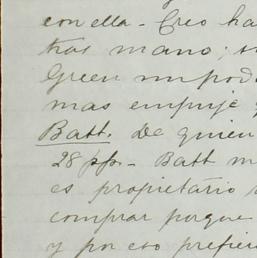 con ella - Creo ha
tras mano;
Green un pod
mas empuje
Batt. De quien
28 pps - Batt m
es propietario
comprar porque
y por eso prefier